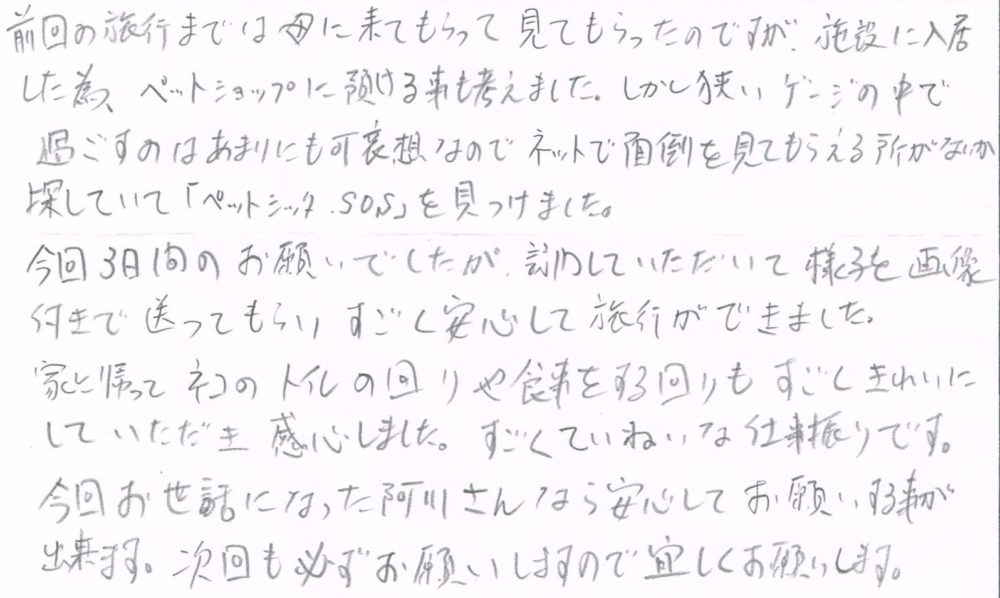 前回の旅行までは母に来てもらって見てもらったのですが、施設に入居
した為、ペットショップに預ける事も考えました。しかし狭いゲージの中で
過ごすのはあまりにも可哀想なのでネットで面倒を見てもらえる所がないか
探していて「ペットシッターSOS」を見つけました。
今回3日間のお願いでしたが、訪問していただいて様子を画像
付きで送ってもらいすごく安心して旅行ができました。
家に帰ってネコのトイレの回りや食事をする回りもすごくきれいに
していただき感心しました。すごくていねいな仕事振りです。
今回お世話になった阿川さんなら安心してお願いする事が
出来ます。次回も必ずお願いしますので宜しくお願いします。